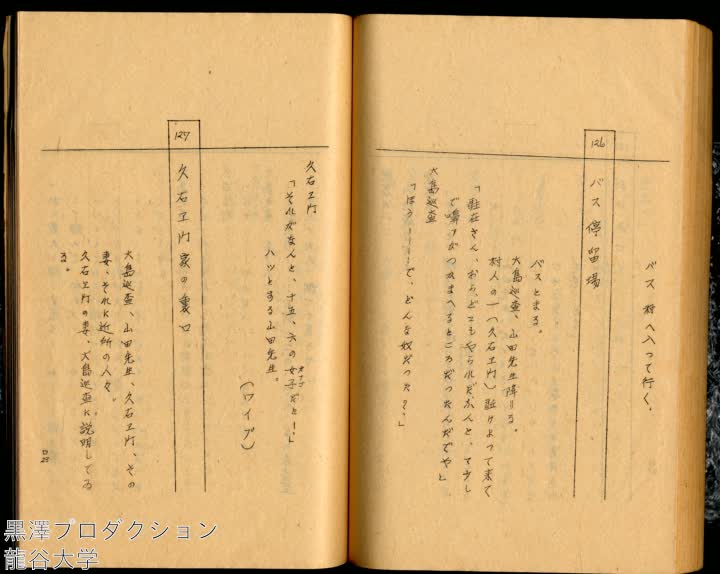 バス 村へ入って行く。
126 バス停留場
バスとまる。
大島巡査、山田先生降りる。
村人の一(久右ヱ門)駈けよって来て
「駐在さん、おらどこもやられただふんと、も少し
で嚊がつかまへるところだったんだでや」
大島巡査
「ほう――で、どんな奴だった?」
久右ヱ門
「それがなんと、十五、六の女子だと!」
オナゴ
ハッとする山田先生。
(ワイプ)
127 久右ヱ門家の裏口
大島巡査、山田先生、久右ヱ門、その
妻、それに近所の人々。
久右ヱ門の妻、大島巡査に説明してゐ
る。
黒澤プロダクション
龍谷大学